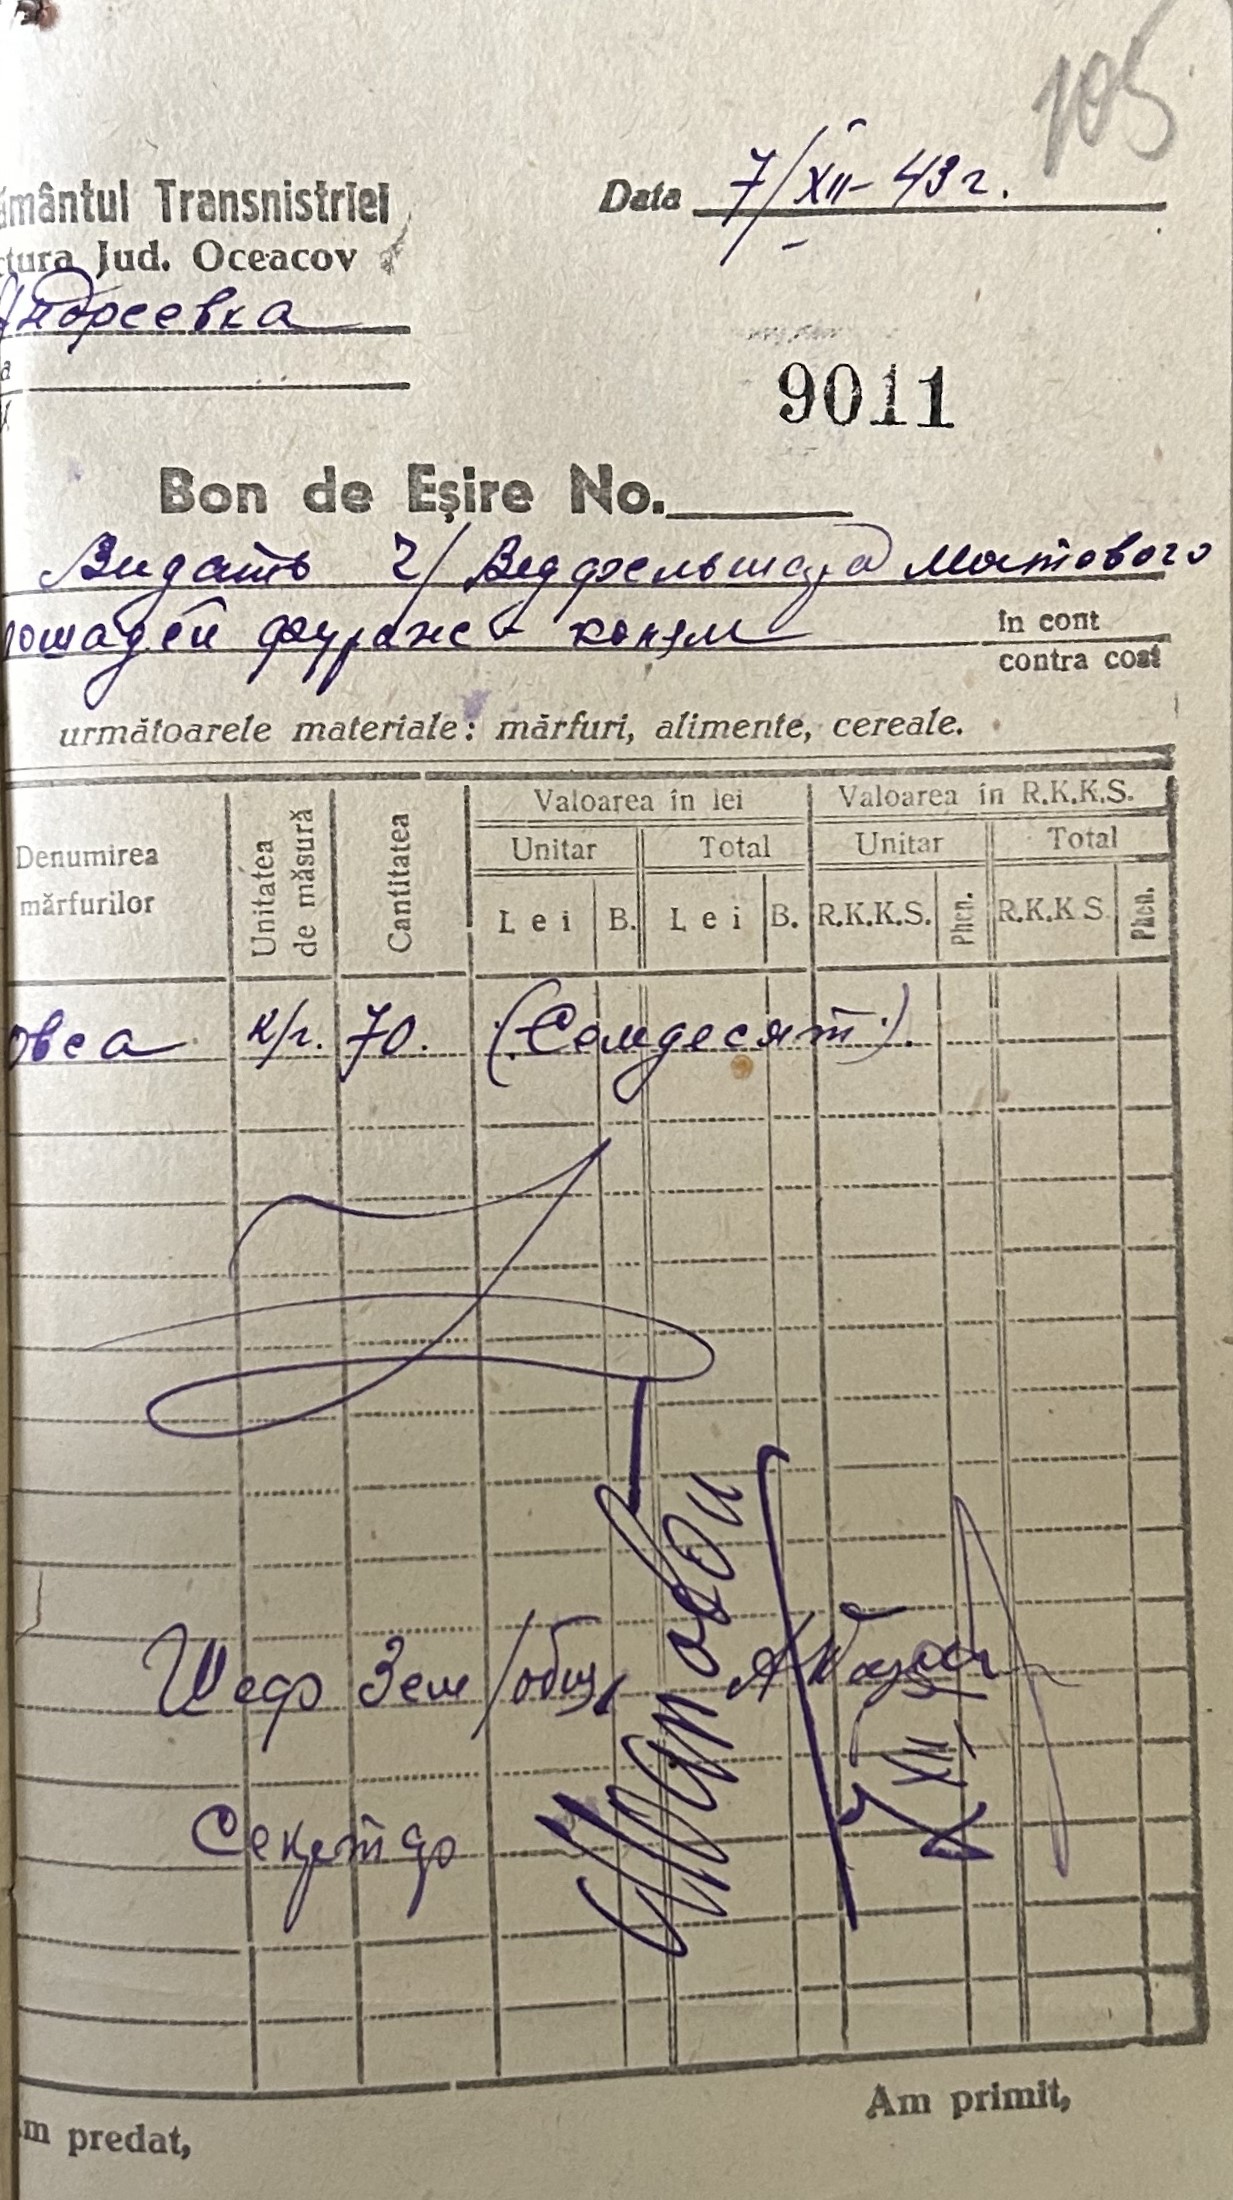 105
ământul Transnistriei
Data 7/XII-43г.
ctura Jud. Oceacov
Андреевка
a
9011
Bon de Eșire No.
Видать ч/ Ведфельшера Мотового
лошадей фураж - коням
în cont
contra cost
următoarele materiale: mărfuri, alimente, cereale.
Denumirea mărfurilor
Unitatea de măsură
Cantitatea
Valoarea în lei
Valoarea în R.K.K.S.
Unitar
Total
Unitar
Total
Lei
B.
Lei
B.
R.K.K.S.
Phen.
R.K.K S.
Phen.
овса к/г. 70. (Семдесят).
Шеф Зем/общ,
Мотовой
XII
Секретар
Am primit,
m predat,